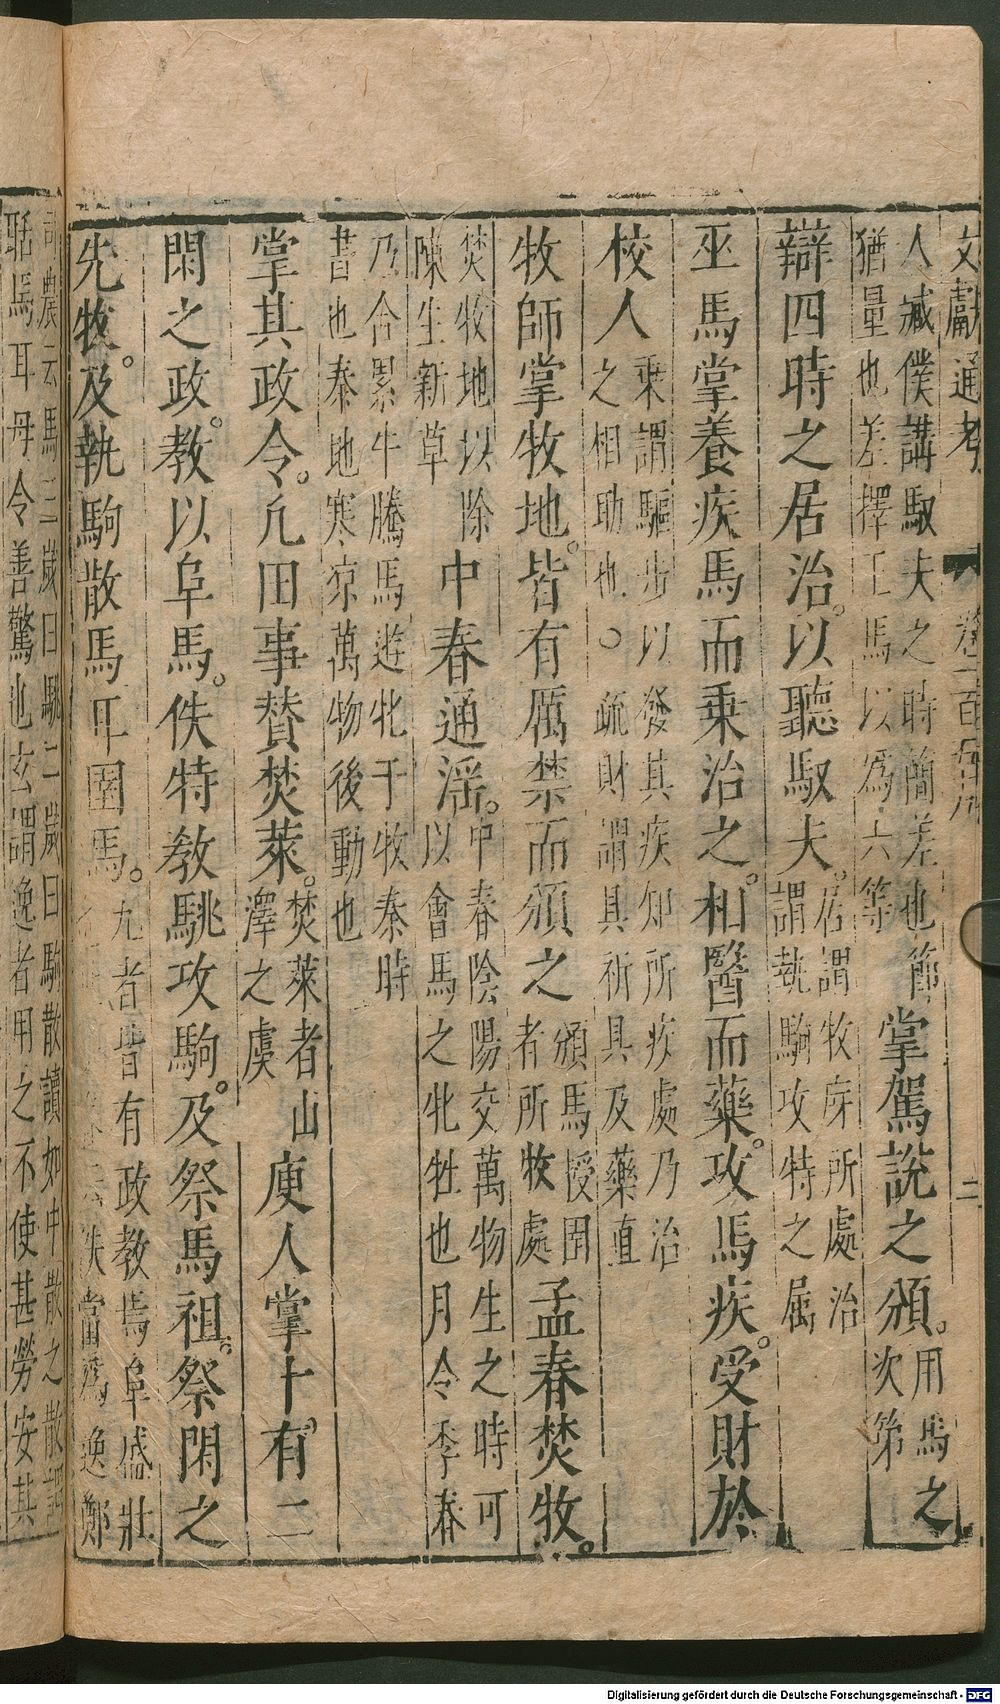 文獻通考
二
人臧僕講馭夫之時簡差也節
猶量也差擇王馬以爲六等
掌駕說之頒。
用馬之
次第
辯四時之居治。以聽馭夫。
居謂牧庌所處治
謂執駒攻特之屬
巫馬掌養疾馬而乗治之。相醫而藥。攻馬疾。受財於
校人
乗謂驅步以發其疾知所疾處乃治
之相助也。疏財謂具祈具及藥直
牧師掌牧地。皆有厲禁而頒之
頒馬授圉
者所牧處
孟春焚牧。
焚牧地以除
陳生新草
中春通淫。
中春陰陽交萬物生之時可
以會馬之牝牡也月令季春
乃合累牛騰馬遊牝于牧秦時
書也秦地寒凉萬物後動也
掌其政令。凡田事賛焚萊。
焚萊者山
澤之虞
庾人掌十有二
閑之政。教以阜馬。佚特教駣攻駒。及祭馬祖。祭閑之
先牧。及執駒散馬耳圉馬。
九者皆有政教焉阜盛壯
佚當爲逸鄭
司農云馬三歲曰駣二歲曰駒散讀如中散之散謂
聒馬耳毋令善驚也玄謂逸者用之不使甚勞安其
Digitalisierung gefördert durch die Deutsche Forschungsgemeinschaft - DFG